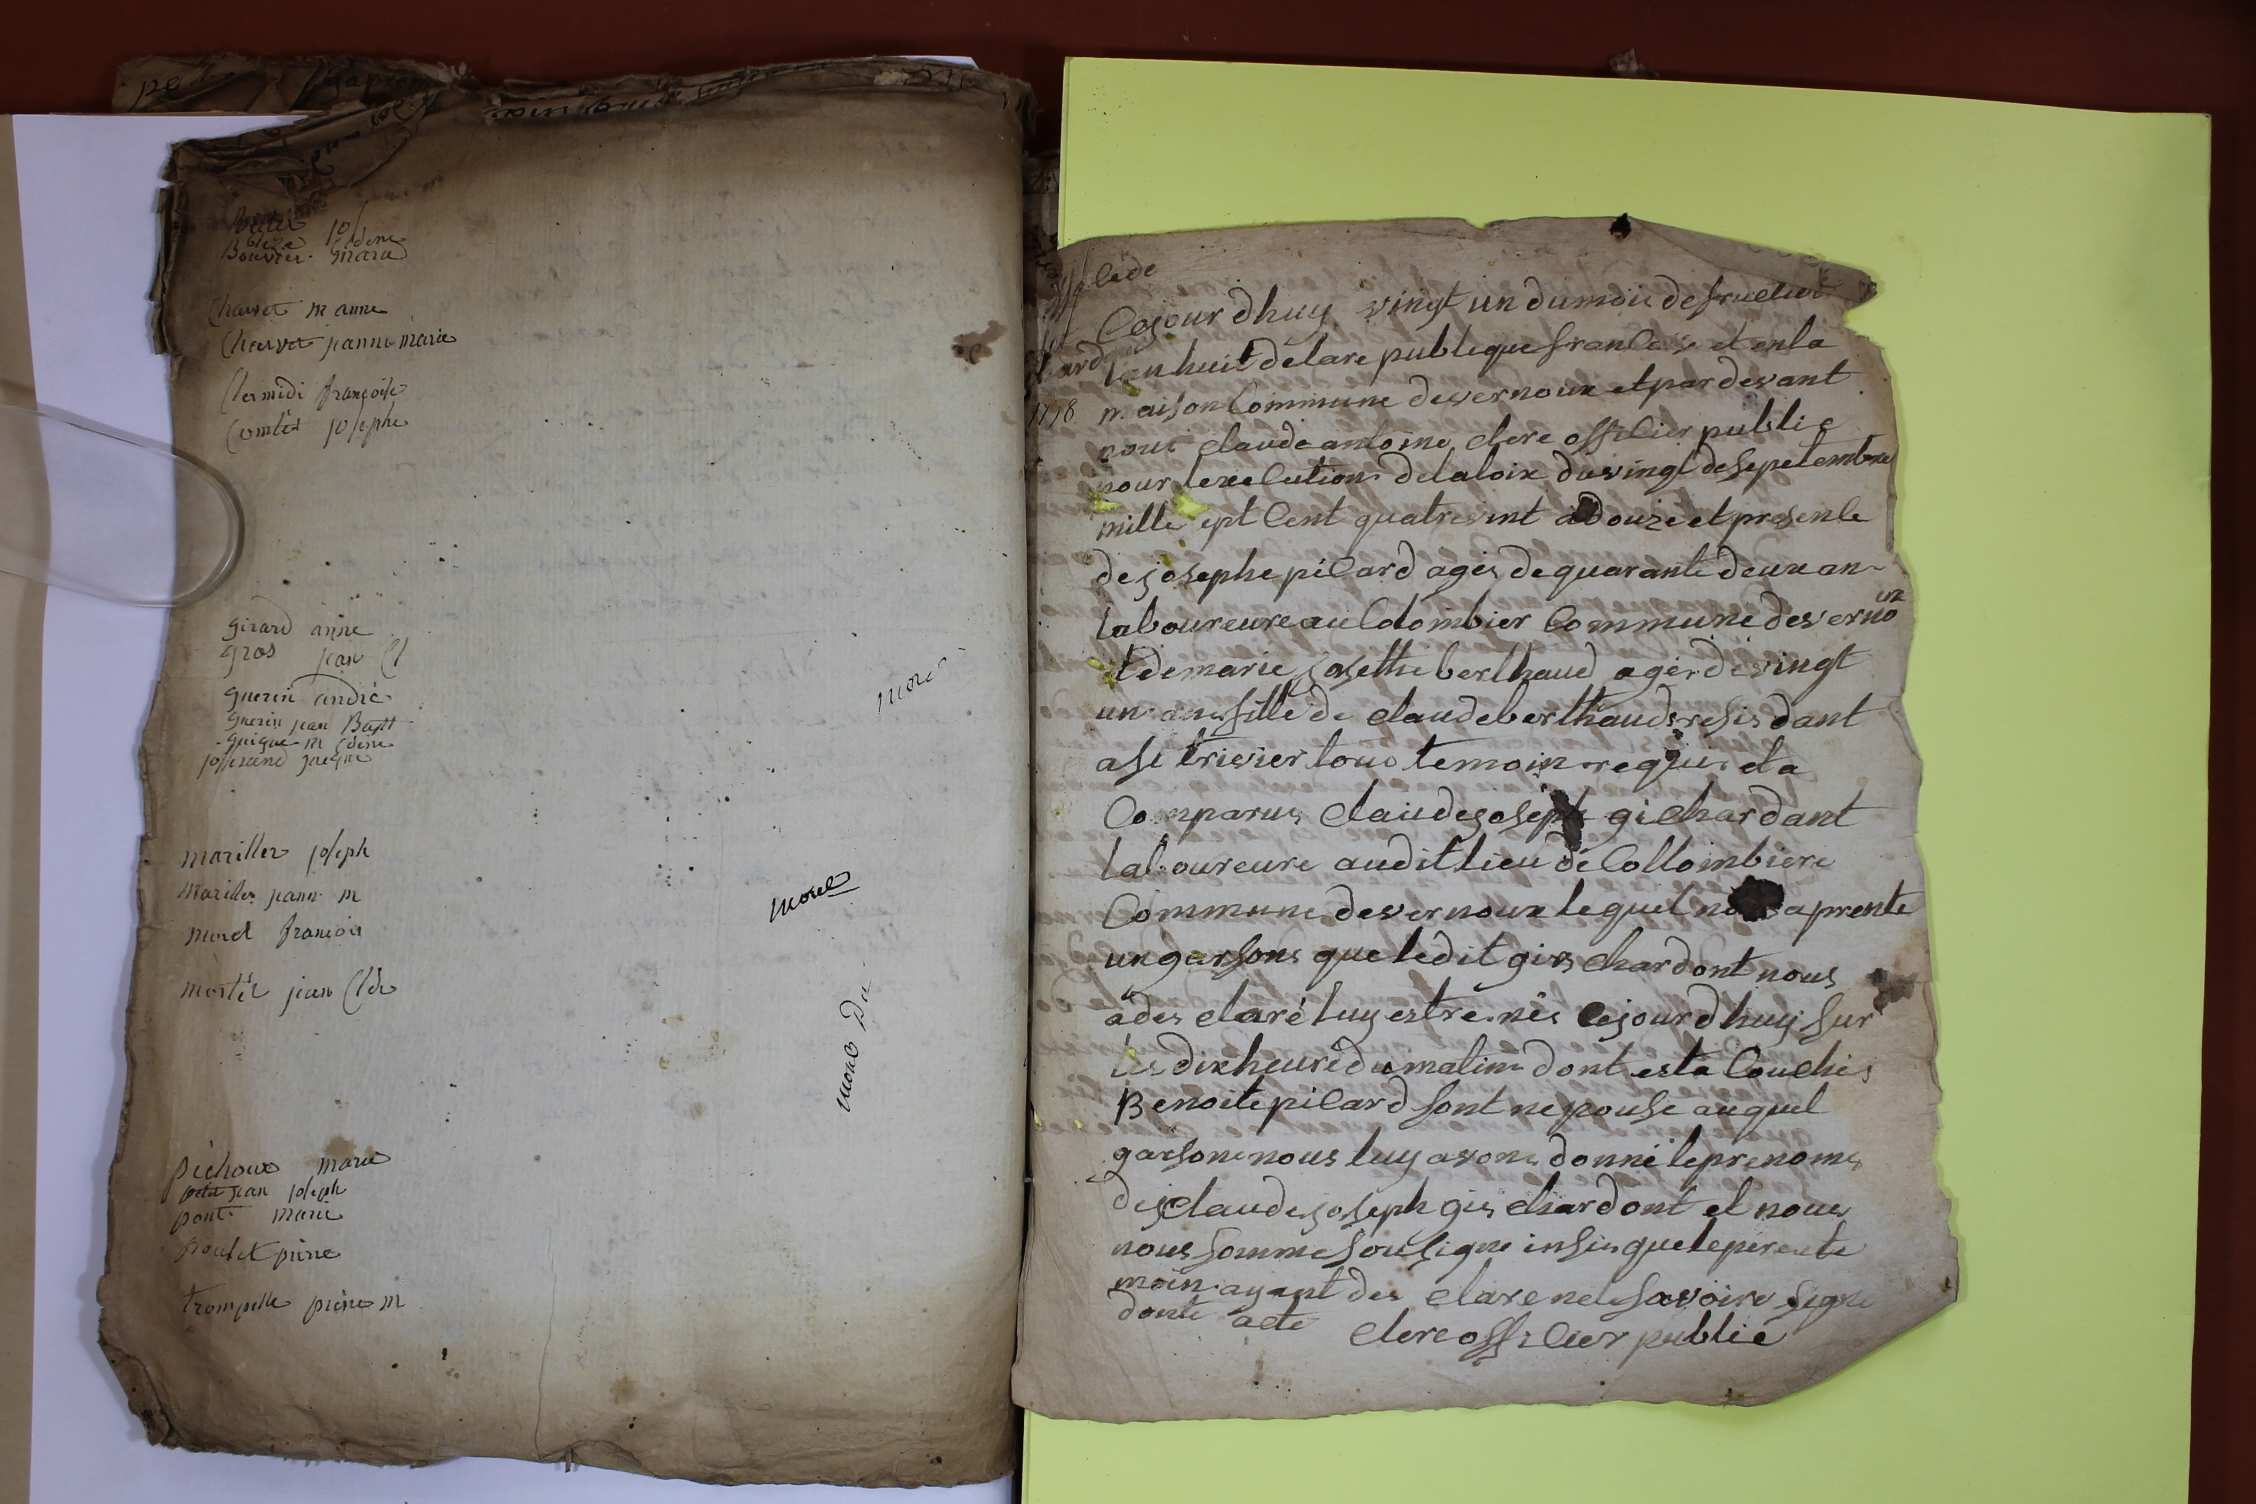 Bouvier marie
Charvet m anne
Charvet jeanne marie
Clermidi françoise
Combet josephe
girard anne
gros jean Cl
guerin andré
guerin jean Bapt
guigue m
josserand jacque
mariller joseph
mariller jeann m
morel francois
mortel jean Cl
pichoux marie
petit jean joseph
pont marie
poulet pierre
trompille pierre m
morel
morel
morel Du
Cejour dhuy vingt un du mois de fructidor
lan huit delare publique francaise et en la
maison Commune devernoux et pardevant
nous claude antoine clerc officier public
pour lexecution delaloix duvingt desepetembre
mille sept Cent quatrevint adouze et presence
de josephe picard ages dequarante deux an
laboureure au Colombier Commune devernoux
et demarie josette berthaud ager devingt
un ans fille de claude berthaud resisdant
a st trivier tous temoin requis et a
Comparus claude joseph gichardant
laboureure audit lieu de Collombiere
Commune devernoux lequel nous aprente
un garsons que ledit gischardont nous
ades claré luy estre nés cejourdhuy sur
les dix heure du matin dont esta Couchés
Benoite picard sont nepouse auquel
garsone nous luy avons donné leprenoms
des claude joseph gischardont et nous
nous somme sousigne insin que le pere ete
moin ayant des clare nele savoire signe
donte acte
clerc officier public
1798